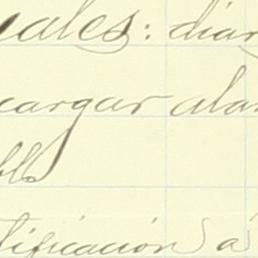 cales: diar
cargar alam
ble
tificación á